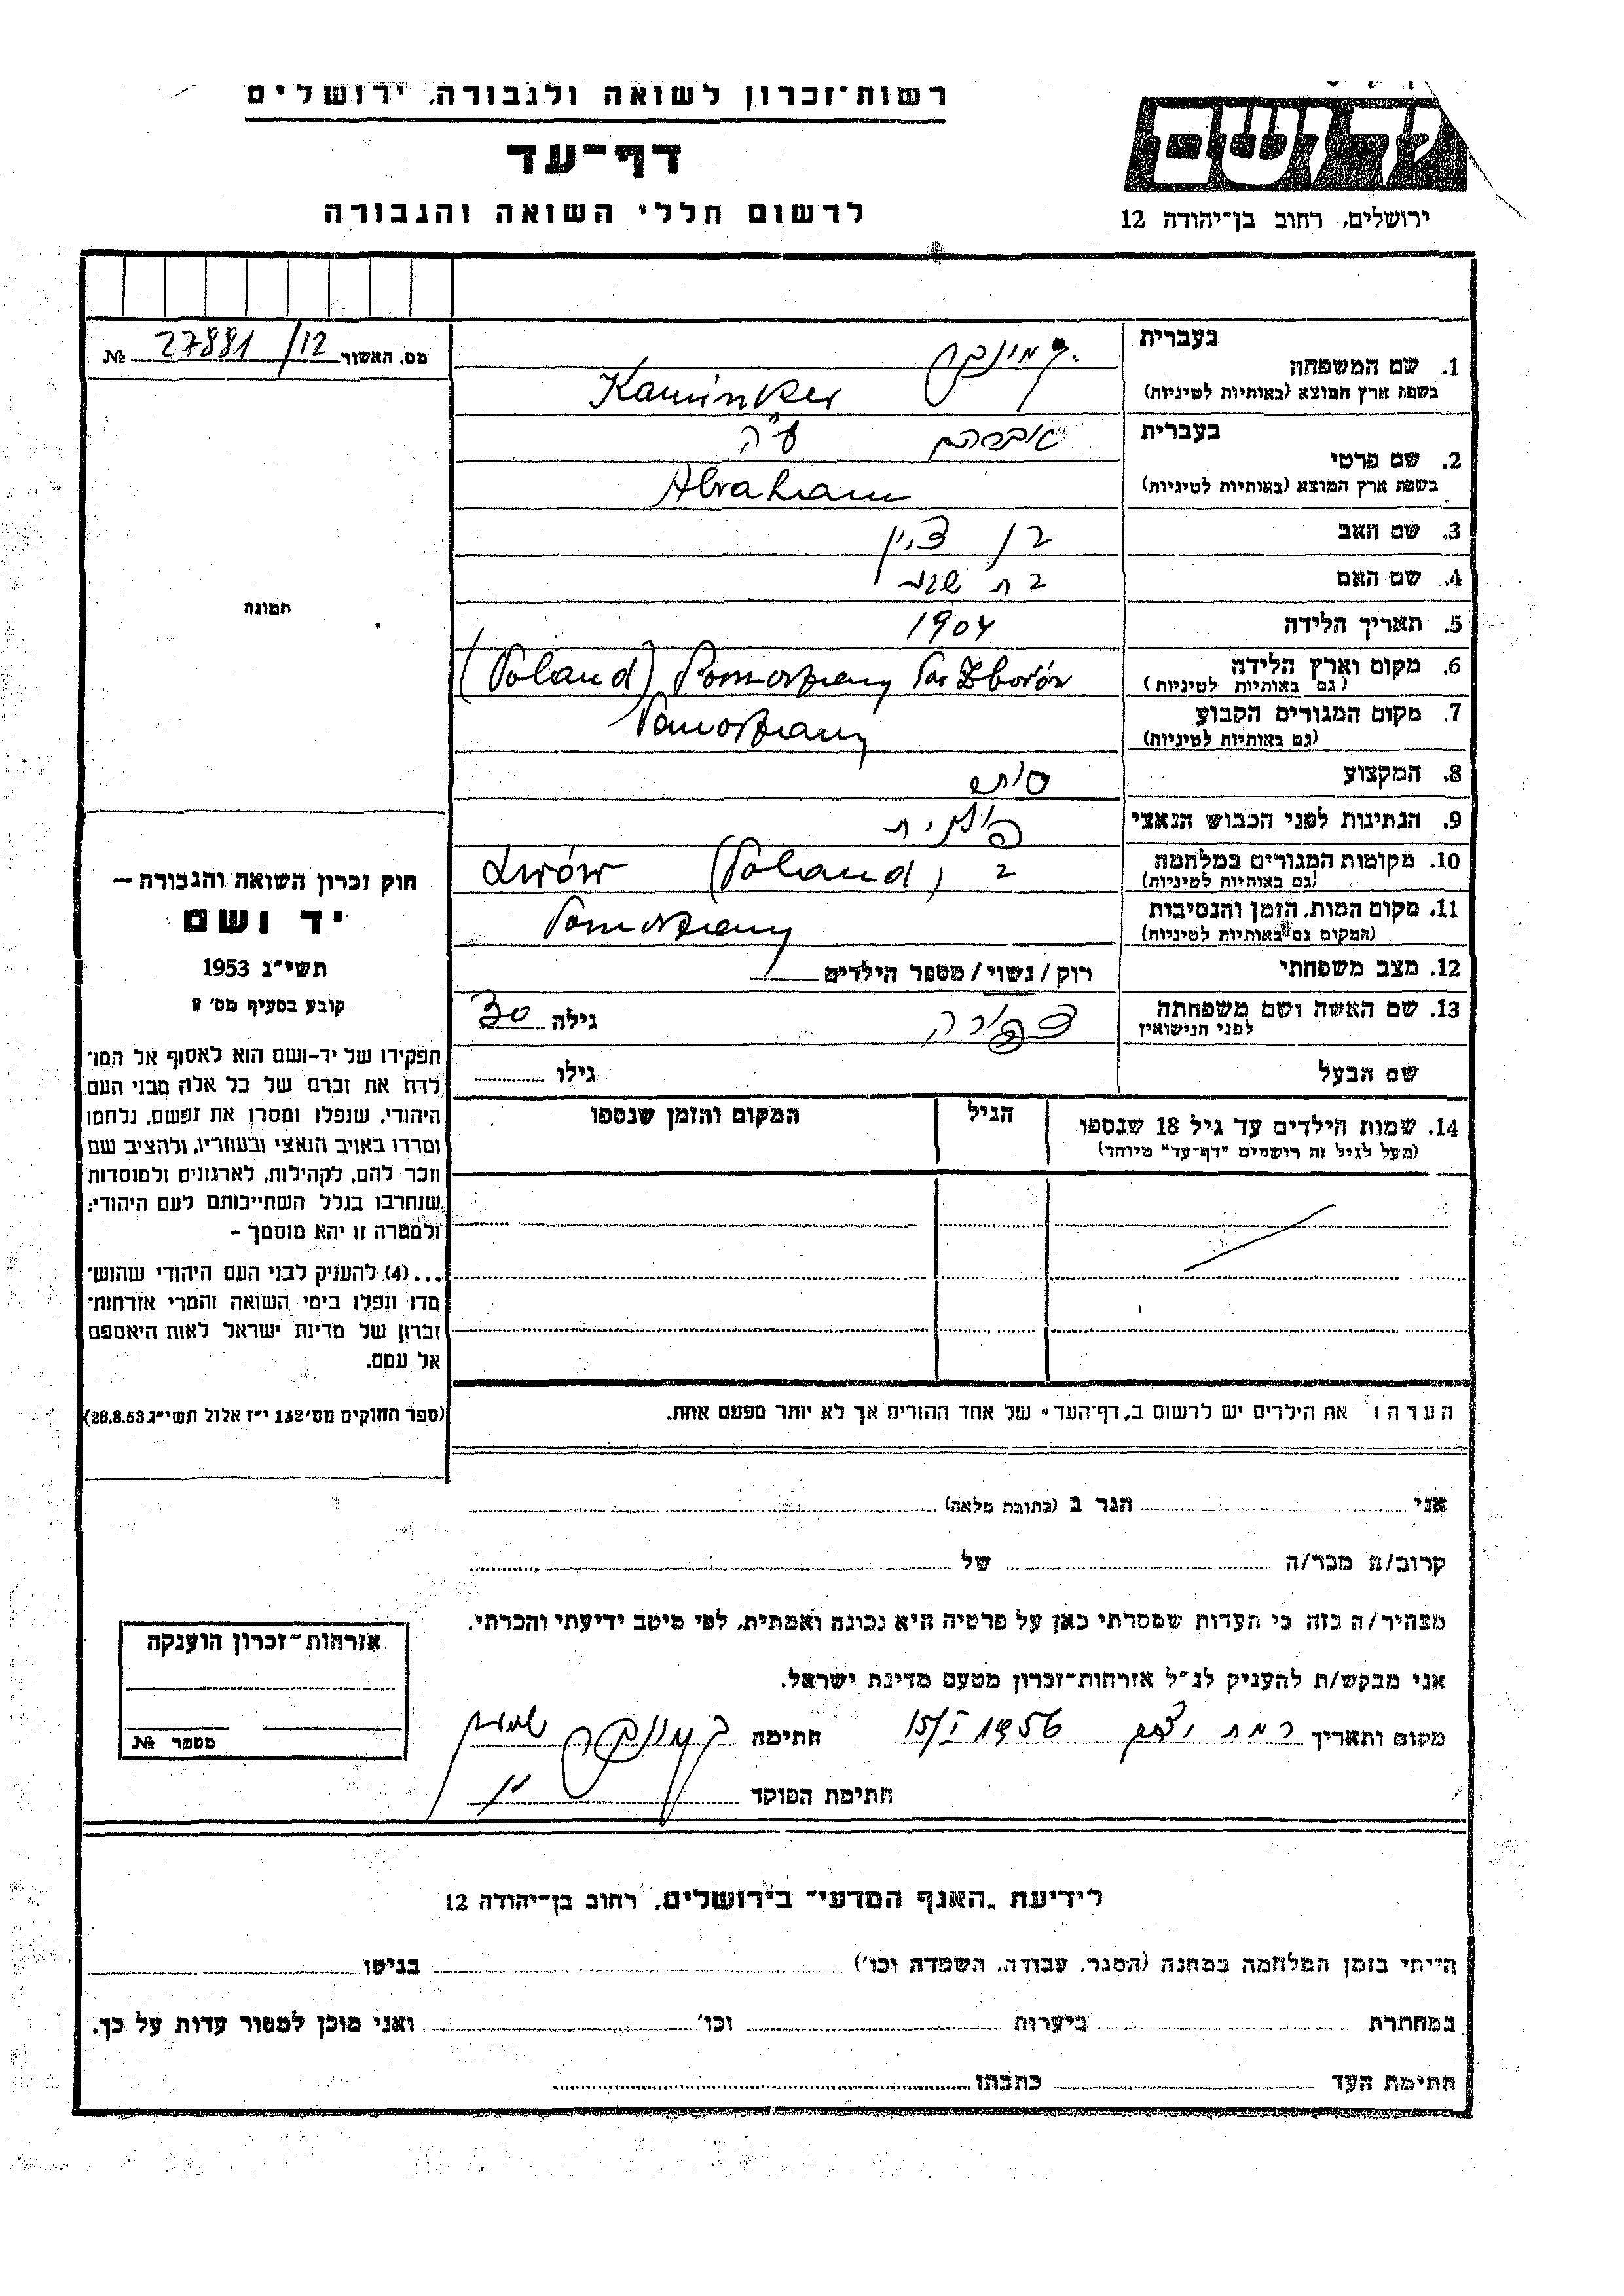 רשות־זכרון לשואה ולגבורה, ירושלים
דף־עד
לרשום חללי השואה והגבורה
יד ושם
ירושלים, רחוב בן־יהודה 12
מס. האשור 27881/12 №
תמונה
חוק זכרון השואה והגבורה —
יד ושם
תשי״ג 1953
קובע בסעיף מס׳ 8
תפקידו של יד־ושם הוא לאסוף אל המו־
לדת את זכרם של כל אלה מבני העם
היהודי, שנפלו ומסרו את נפשם, נלחמו
ומרדו באויב הנאצי ובעוזריו, ולהציב שם
וזכר להם, לקהילות, לארגונים ולמוסדות
שנחרבו בגלל השתייכותם לעם היהודי;
ולמטרה זו יהא מוסמך —
...(4) להעניק לבני העם היהודי שהוש־
מדו ונפלו בימי השואה והמרי אזרחות־
זכרון של מדינת ישראל לאות היאספם
אל עמם.
(ספר החוקים מס׳ 132 י״ז אלול תשי״ג 28.8.53)
בעברית קמינקר
1. שם המשפחה
בשפת ארץ המוצא (באותיות לטיניות) Kaminker
בעברית אברהם ע״ה
2. שם פרטי
בשפת ארץ המוצא (באותיות לטיניות) Abraham
3. שם האב בן ציון
4. שם האם בת שבע
5. תאריך הלידה 1904
6. מקום וארץ הלידה
(גם באותיות לטיניות) (Poland) Pomorzany Zborów
7. מקום המגורים הקבוע
(גם באותיות לטיניות) Pomorzany
8. המקצוע סוחר
9. הנתינות לפני הכבוש הנאצי פולנית
10. מקומות המגורים במלחמה
(גם באותיות לטיניות) Lwów (Poland)
11. מקום המות, הזמן והנסיבות
(המקום גם באותיות לטיניות) Pomorzany
12. מצב משפחתי רוק / נשוי / מספר הילדים
13. שם האשה ושם משפחתה
לפני הנישואין צפורה גילה 30
שם הבעל גילו
14. שמות הילדים עד גיל 18 שנספו הגיל המקום והזמן שנספו
(מעל לגיל זה רושמים "דף־עד" מיוחד)
הערה: את הילדים יש לרשום ב„דף־העד" של אחד ההורים אך לא יותר מפעם אחת.
אני הגר ב (כתובת מלאה)
קרוב/ה מכר/ה של
מצהיר/ה בזה כי העדות שמסרתי כאן על פרטיה היא נכונה ואמתית, לפי מיטב ידיעתי והכרתי.
אני מבקש/ת להעניק לנ״ל אזרחות־זכרון מטעם מדינת ישראל.
מקום ותאריך רמת 15/I 1956 חתימה קמינקר
חתימת הפוקד
אזרחות־זכרון הוענקה
מספר №
לידיעת „האגף המדעי" בירושלים, רחוב בן־יהודה 12
הייתי בזמן המלחמה במחנה (הסגר, עבודה, השמדה וכו׳) בגיטו
במחתרת ביערות וכו׳ ואני מוכן למסור עדות על כך.
חתימת העד כתבתו